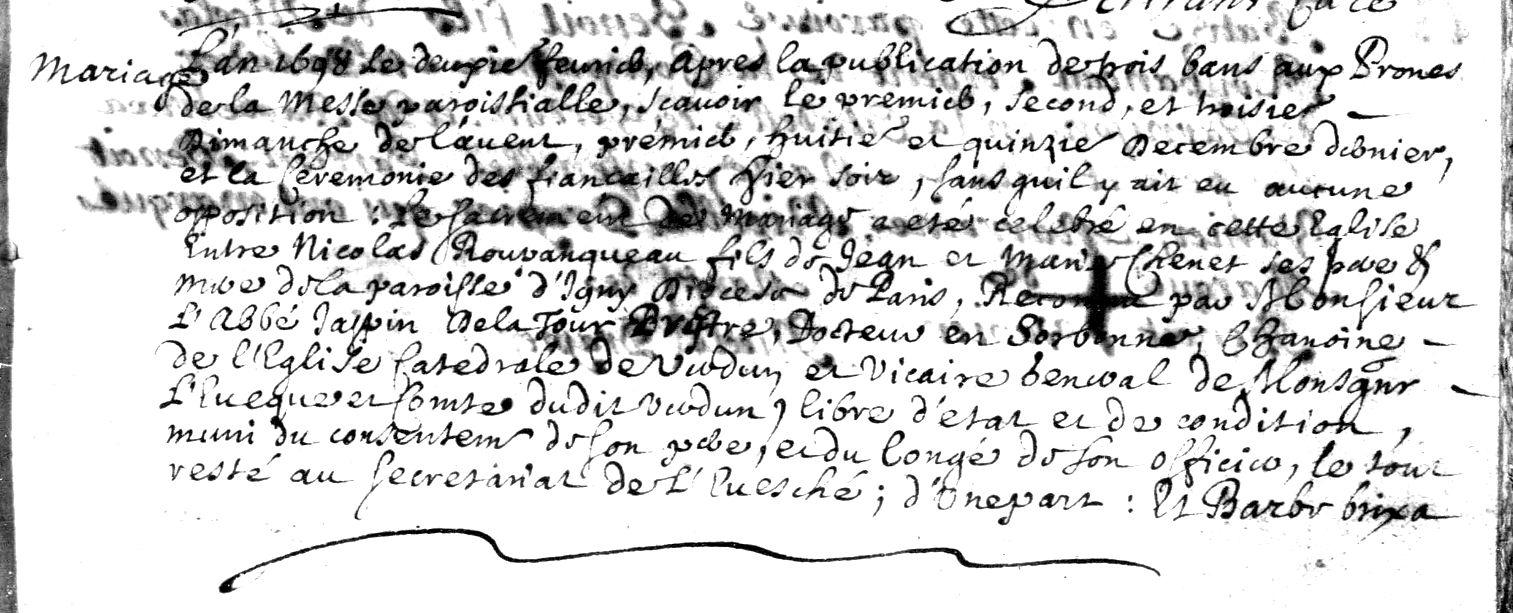 Mariage
L'an 1698 le deuxie fevrier, apres la publication de trois bans aux Prones
de la Messe paroissialle, scavoir le premier, second, et troisie
Dimanche de l'avent, prémier, huitie et quinzie Decembre dernier,
et la Ceremonie des fiancailles hier soir, sans quil y ait eu aucune
opposition : le sacrement de mariage a eté celebré en cette Eglise
Entre Nicolas Rouvanqueau fils de Jean et Marie Chenet ses pere &
mere de la paroisse d'Igny Diocese de Paris, Reconnu par Monsieur
L'Abbé Jappin De la Tour Prestre, Docteur en Sorbonne, Chanoine
de l'Eglise Catedrale de Verdun et Vicaire General de Monsgnr
L'Eveque et Comte dudit Verdun, libre d'état et de condition,
muni du consentem de son pere, et du Congé de son officier, le tout
resté au secretariat de L'Evesché ; d'Unepart : Et Barbe brixa